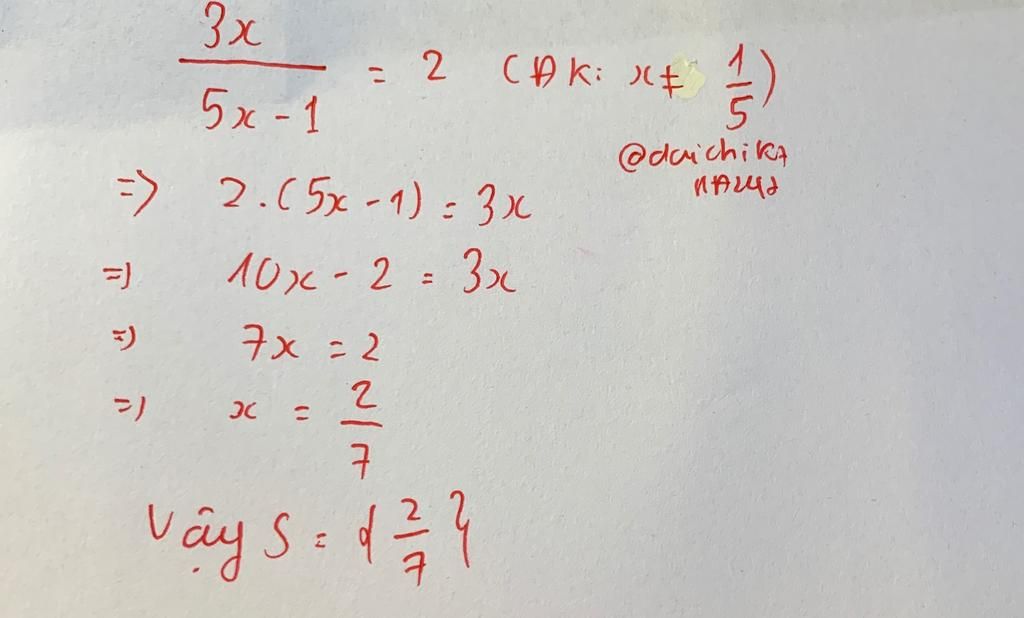 3x
/ 5x - 1 = 2 (ĐK: x ≠ 1/5)
@daichika
=> 2.(5x - 1) = 3x
=> 10x - 2 = 3x
=> 7x = 2
=> x = 2/7
Vậy S = {2/7}